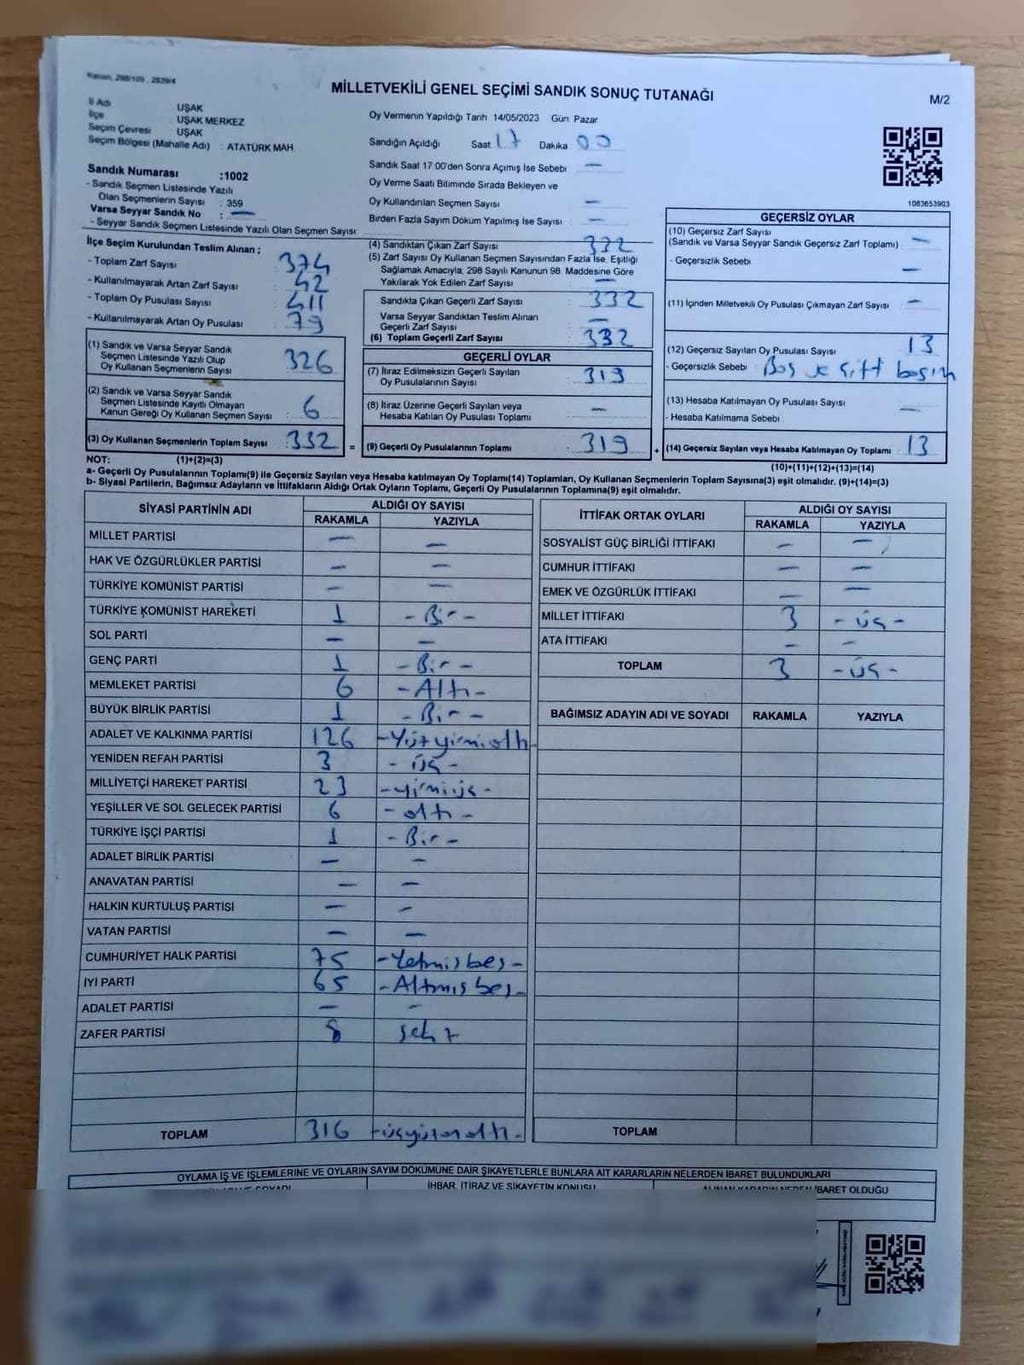 Kanun, 298/105 , 2839/4
MİLLETVEKİLİ GENEL SEÇİMİ SANDIK SONUÇ TUTANAĞI
M/2
İl Adı : UŞAK
İlçe : UŞAK MERKEZ
Seçim Çevresi : UŞAK
Seçim Bölgesi (Mahalle Adı) : ATATÜRK MAH.
Oy Vermenin Yapıldığı Tarih 14/05/2023 Gün: Pazar
Sandığın Açıldığı Saat 17 Dakika 00
Sandık Saat 17:00'den Sonra Açımış İse Sebebi —
Oy Verme Saati Bitiminde Sırada Bekleyen ve
Oy Kullandırılan Seçmen Sayısı —
Birden Fazla Sayım Döküm Yapılmış İse Sayısı —
1083653903
Sandık Numarası :1002
- Sandık Seçmen Listesinde Yazılı
Olan Seçmenlerin Sayısı : 359
Varsa Seyyar Sandık No : —
- Seyyar Sandık Seçmen Listesinde Yazılı Olan Seçmen Sayısı
İlçe Seçim Kurulundan Teslim Alınan ;
- Toplam Zarf Sayısı 374
- Kullanılmayarak Artan Zarf Sayısı 42
- Toplam Oy Pusulası Sayısı 411
- Kullanılmayarak Artan Oy Pusulası 79
(1) Sandık ve Varsa Seyyar Sandık
Seçmen Listesinde Yazılı Olup
Oy Kullanan Seçmenlerin Sayısı 326
(2) Sandık ve Varsa Seyyar Sandık
Seçmen Listesinde Kayıtlı Olmayan
Kanun Gereği Oy Kullanan Seçmen Sayısı 6
(3) Oy Kullanan Seçmenlerin Toplam Sayısı 332 =
(4) Sandıktan Çıkan Zarf Sayısı 332
(5) Zarf Sayısı Oy Kullanan Seçmen Sayısından Fazla İse, Eşitliği
Sağlamak Amacıyla, 298 Sayılı Kanunun 98. Maddesine Göre
Yakılarak Yok Edilen Zarf Sayısı —
Sandıkta Çıkan Geçerli Zarf Sayısı 332
Varsa Seyyar Sandıktan Teslim Alınan
Geçerli Zarf Sayısı —
(6) Toplam Geçerli Zarf Sayısı 332
GEÇERLİ OYLAR
(7) İtiraz Edilmeksizin Geçerli Sayılan
Oy Pusulalarının Sayısı 319
(8) İtiraz Üzerine Geçerli Sayılan veya
Hesaba Katılan Oy Pusulası Toplamı —
(9) Geçerli Oy Pusulalarının Toplamı 319 +
GEÇERSİZ OYLAR
(10) Geçersiz Zarf Sayısı
(Sandık ve Varsa Seyyar Sandık Geçersiz Zarf Toplamı) —
- Geçersizlik Sebebi —
(11) İçinden Milletvekili Oy Pusulası Çıkmayan Zarf Sayısı —
(12) Geçersiz Sayılan Oy Pusulası Sayısı 13
- Geçersizlik Sebebi Boş ve çift basım
(13) Hesaba Katılmayan Oy Pusulası Sayısı —
- Hesaba Katılmama Sebebi
(14) Geçersiz Sayılan veya Hesaba Katılmayan Oy Toplamı 13
NOT: (1)+(2)=(3)
(10)+(11)+(12)+(13)=(14)
a- Geçerli Oy Pusulalarının Toplamı(9) ile Geçersiz Sayılan veya Hesaba katılmayan Oy Toplamı(14) Toplamları, Oy Kullanan Seçmenlerin Toplam Sayısına(3) eşit olmalıdır. (9)+(14)=(3)
b- Siyasi Partilerin, Bağımsız Adayların ve İttifakların Aldığı Ortak Oyların Toplamı, Geçerli Oy Pusulalarının Toplamına(9) eşit olmalıdır.
SİYASİ PARTİNİN ADI ALDIĞI OY SAYISI
RAKAMLA YAZIYLA
MİLLET PARTİSİ — —
HAK VE ÖZGÜRLÜKLER PARTİSİ — —
TÜRKİYE KOMÜNİST PARTİSİ — —
TÜRKİYE KOMÜNİST HAREKETİ 1 - Bir -
SOL PARTİ — —
GENÇ PARTİ 1 - Bir -
MEMLEKET PARTİSİ 6 - Altı -
BÜYÜK BİRLİK PARTİSİ 1 - Bir -
ADALET VE KALKINMA PARTİSİ 126 - Yüzyirmialtı
YENİDEN REFAH PARTİSİ 3 - üç -
MİLLİYETÇİ HAREKET PARTİSİ 23 - yirmiüç -
YEŞİLLER VE SOL GELECEK PARTİSİ 6 - altı -
TÜRKİYE İŞÇİ PARTİSİ 1 - Bir -
ADALET BİRLİK PARTİSİ — —
ANAVATAN PARTİSİ — —
HALKIN KURTULUŞ PARTİSİ — —
VATAN PARTİSİ — —
CUMHURİYET HALK PARTİSİ 75 - Yetmişbeş -
İYİ PARTİ 65 - Altmışbeş -
ADALET PARTİSİ — —
ZAFER PARTİSİ 8 sekiz
TOPLAM 316 - üçyüzonaltı -
İTTİFAK ORTAK OYLARI ALDIĞI OY SAYISI
RAKAMLA YAZIYLA
SOSYALİST GÜÇ BİRLİĞİ İTTİFAKI — —
CUMHUR İTTİFAKI — —
EMEK VE ÖZGÜRLÜK İTTİFAKI — —
MİLLET İTTİFAKI 3 - üç -
ATA İTTİFAKI — —
TOPLAM 3 - üç -
BAĞIMSIZ ADAYIN ADI VE SOYADI RAKAMLA YAZIYLA
TOPLAM
OYLAMA İŞ VE İŞLEMLERİNE VE OYLARIN SAYIM DÖKÜMÜNE DAİR ŞİKAYETLERLE BUNLARA AİT KARARLARIN NELERDEN İBARET BULUNDUKLARI
İHBAR, İTİRAZ VE ŞİKAYETİN KONUSU
İBARET OLDUĞU